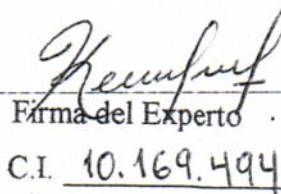 Firma del Experto
C.I. 10.169.494